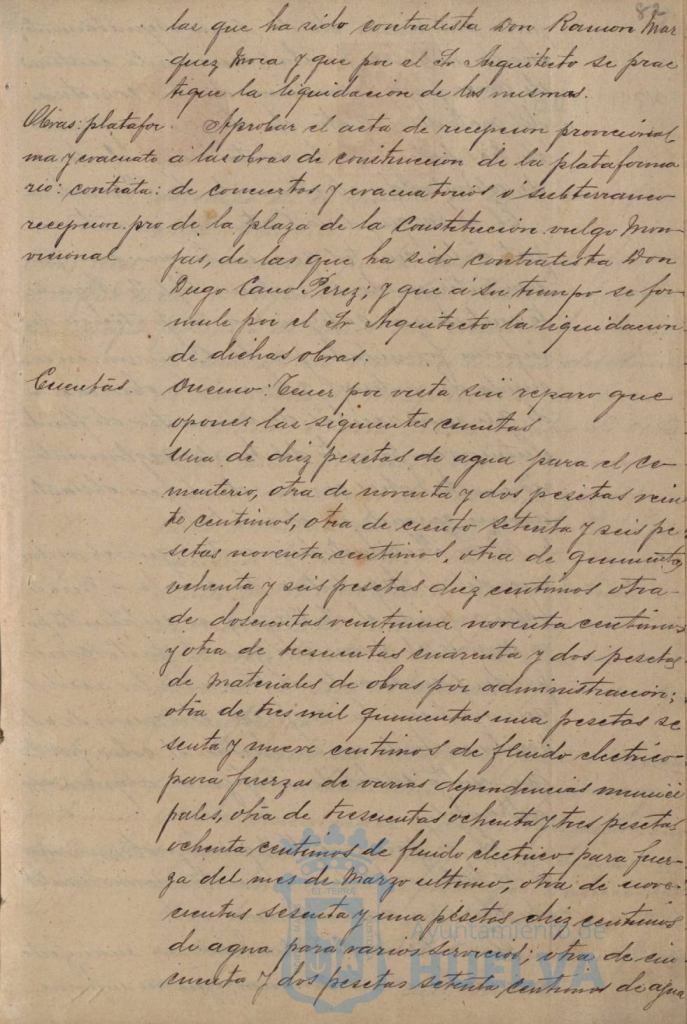 82
las que ha sido contratista Don Ramon Mar
quez Mora y que por el Sr Arquitecto se prac
tique la liquidacion de las mismas.
Obras: platafor
ma y evacuato
rio: contrata:
recepcion pro
visional
Aprobar el acta de recepcion provicional
á las obras de construccion de la plataforma
de conciertos y evacuatorios ó subterraneo
de la plaza de la Constitucion vulgo Mon-
jas, de las que ha sido contratista Don
Diego Cano Perez; y que á su tiempo se for
mule por el Sr Arquitecto la liquidacion
de dichas obras.
Cuentas.
Onceno: Tener por vista sin reparo que
oponer las siguientes cuentas
Una de diez pesetas de agua para el Ce-
menterio, otra de noventa y dos pesetas vein
te centimos, otra de ciento setenta y seis pe-
setas noventa centimos, otra de quinientas
ochenta y seis pesetas diez centimos otra
de doscientas veintiuna noventa centimos
y otra de trescientas cuarenta y dos pesetas
de materiales de obras por administracion;
otra de tres mil quinientas una pesetas se
senta y nueve centimos de fluido electrico
para fuerzas de varias dependencias munici
pales, otra de trescientas ochenta y tres pesetas
ochenta centimos de fluido electrico para fuer-
za del mes de Marzo ultimo, otra de nove-
cientas sesenta y una pesetas diez centimos
de agua para varios servicios; otra de cin-
cuenta y dos pesetas setenta centimos de agua
Ayuntamiento de
HUELVA